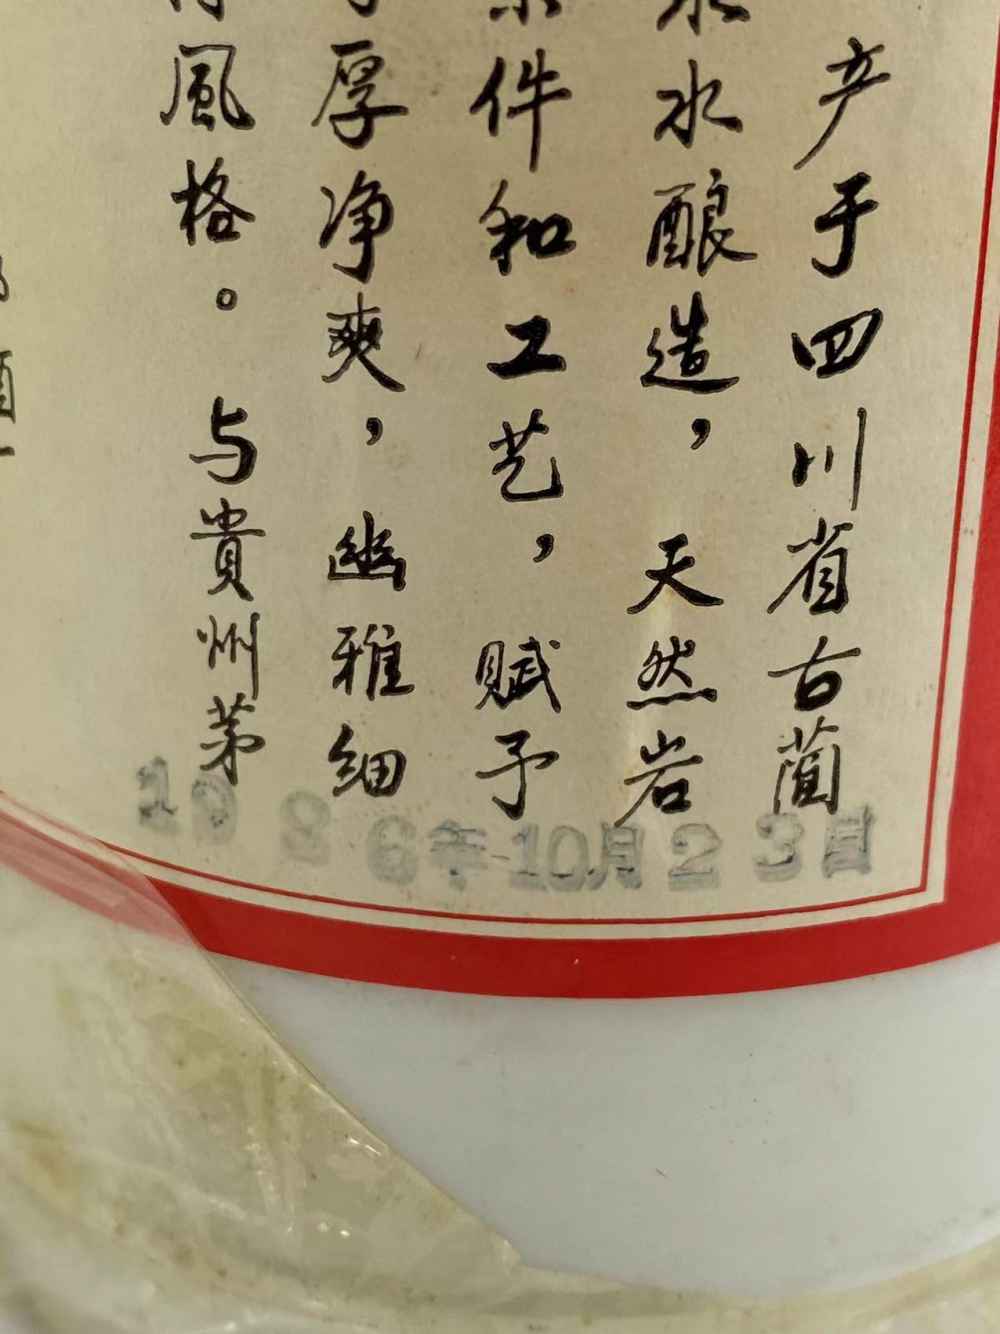 产于四川省古蔺
水酿造，天然岩
件和工艺，赋予
厚净爽，幽雅细
風格。与貴州茅
1986年10月23日